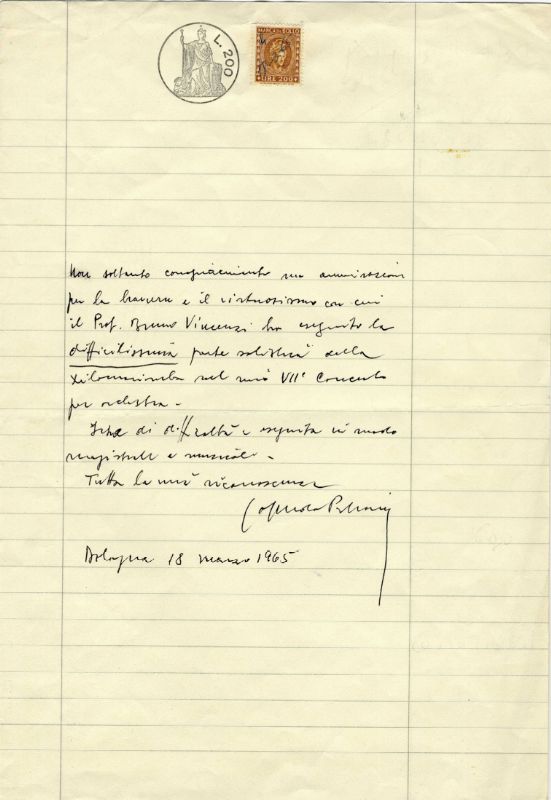 L. 200
MARCA DA BOLLO
LIRE 200
Non soltanto compiacimento ma ammirazione
per la bravura e il virtuosismo con cui
il Prof. Bruno Vincenzi ha eseguito la
difficilissima parte solistica della
Xilomarimba nel mio VII° Concerto
per orchestra.
di difficoltà e eseguita in modo
magistrale e musicale.
Tutta la mia riconoscenza
Goffredo Petrassi
Bologna 18 marzo 1965